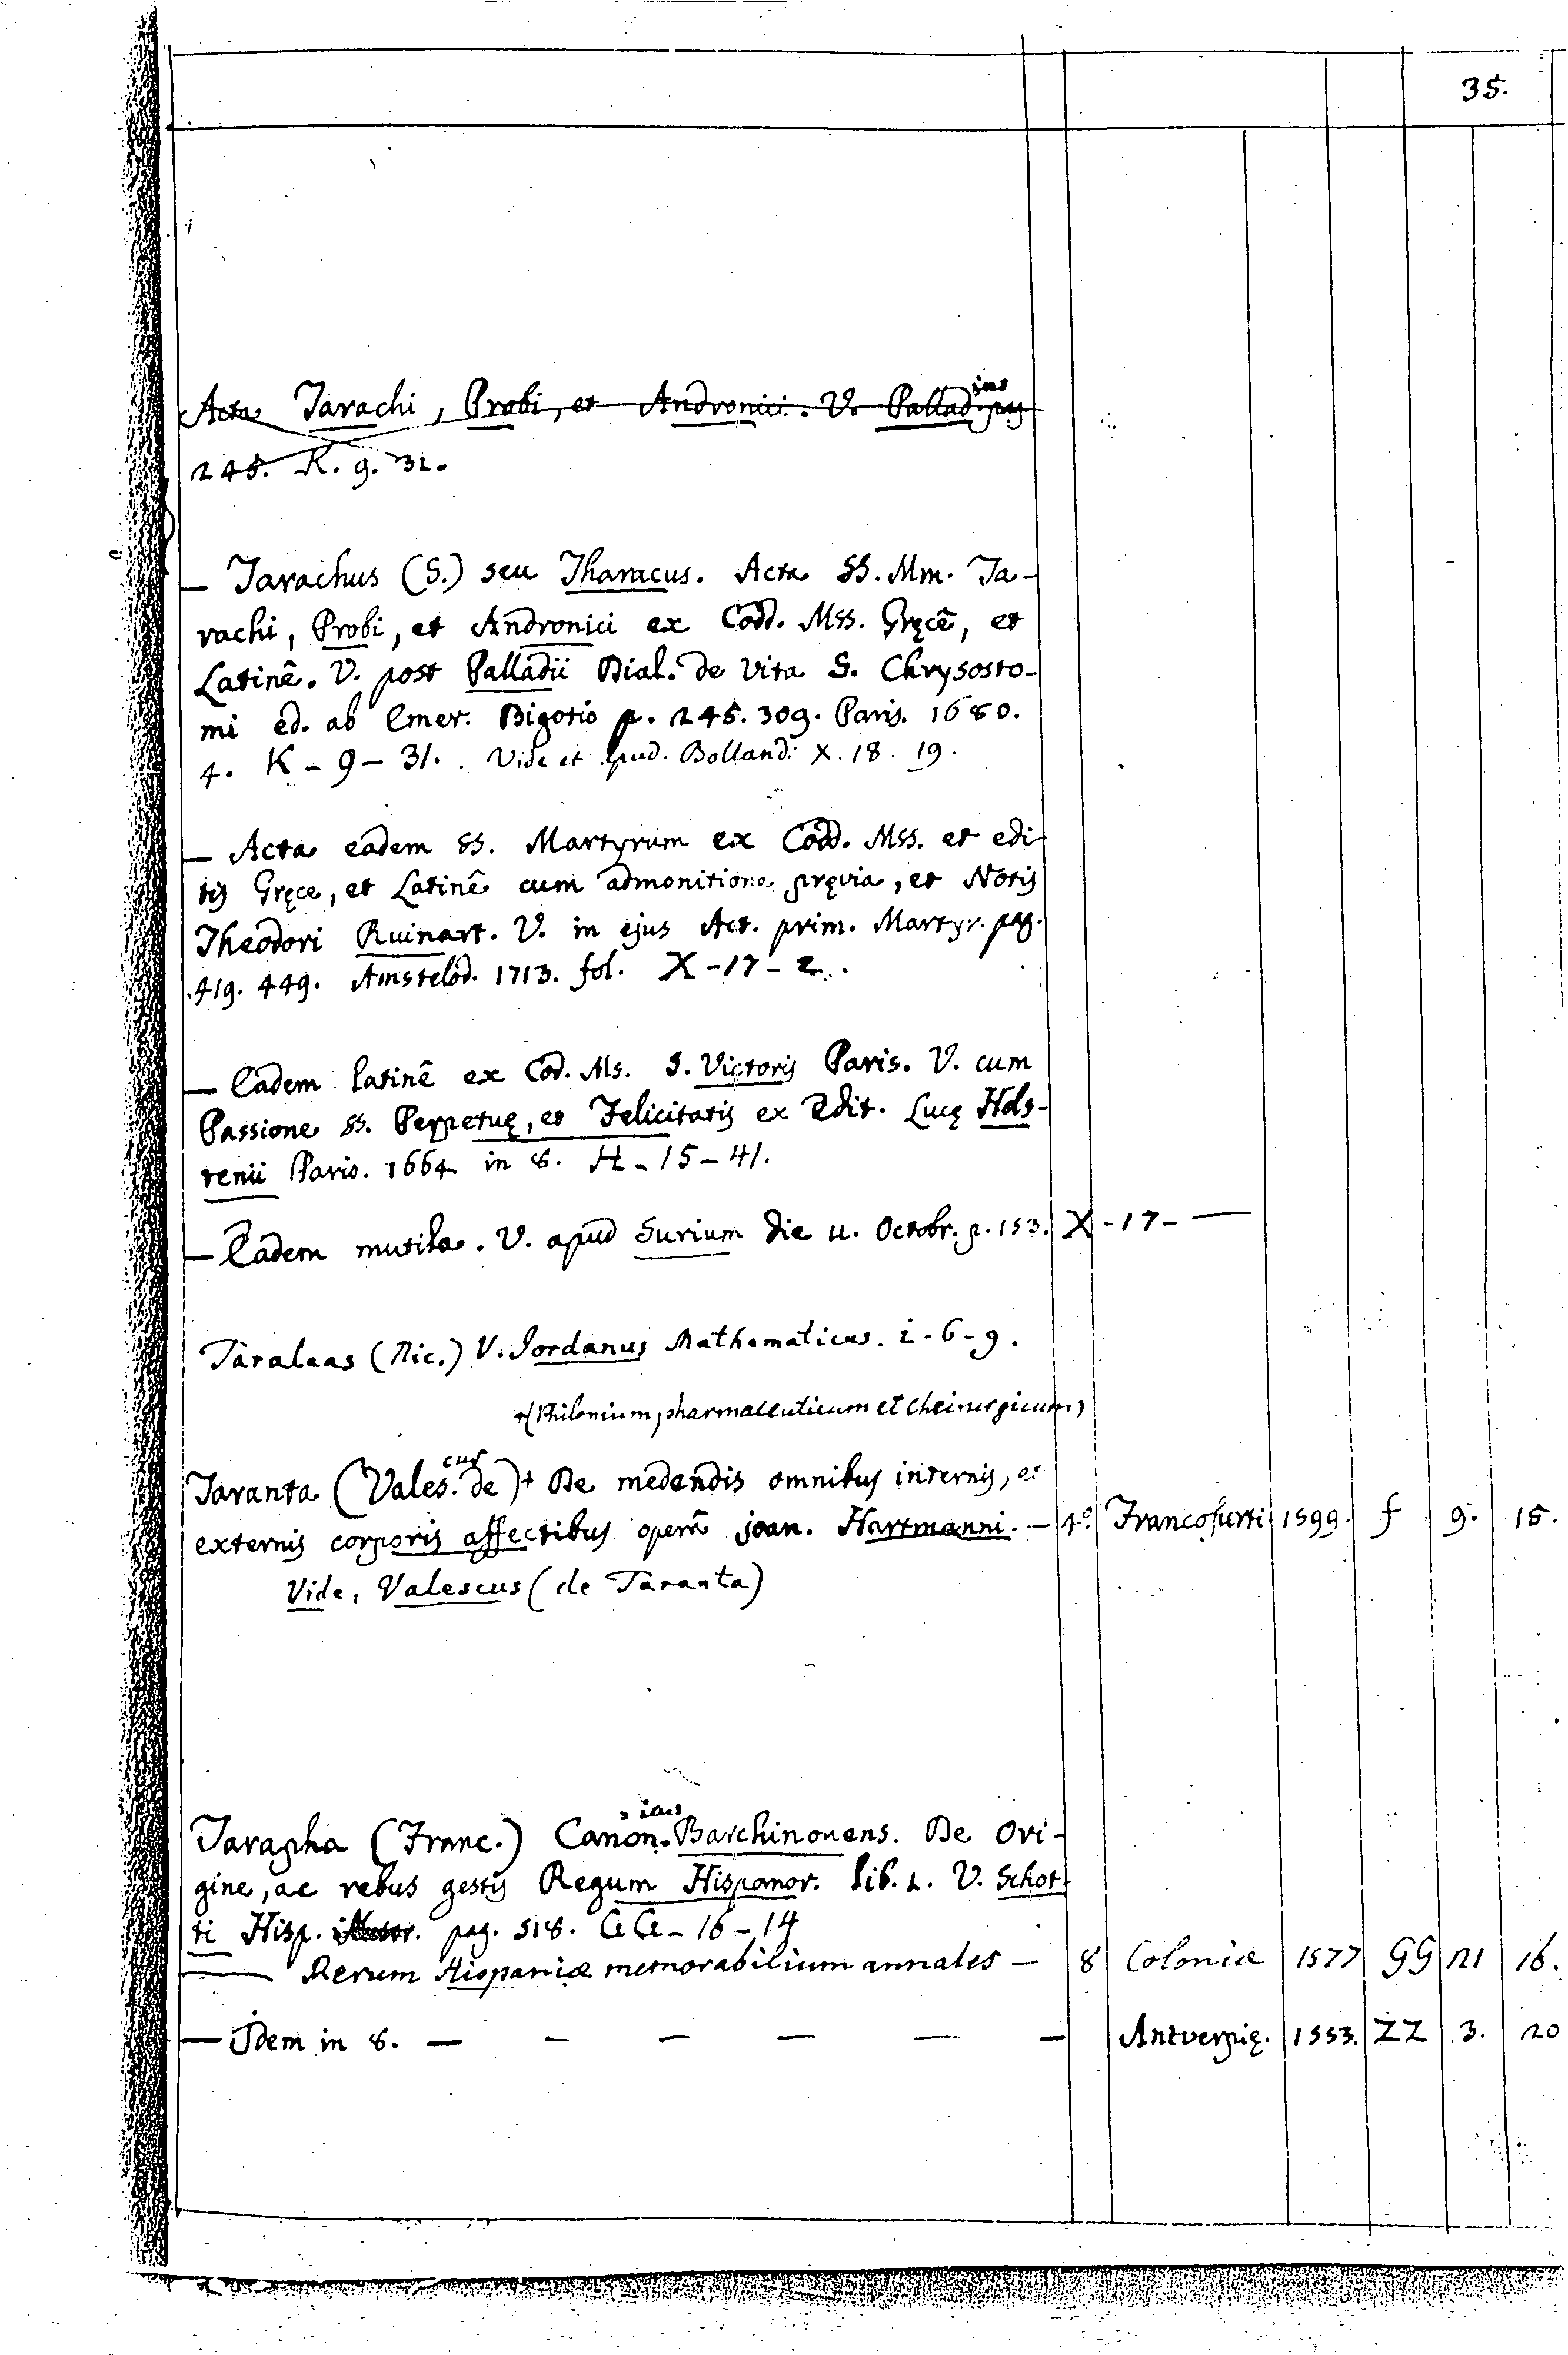 35.
Acta Tarachi, Probi, et Andronici. V. Palladius pag
245. K. 9. 31.
— Tarachus (S.) seu Tharacus. Acta SS. Mm. Ta-
rachi, Probi, et Andronici ex Codd. Mss. Gręcê, et
Latinê. V. post Palladii Dial. de Vita S. Chrysosto-
mi ed. ab Emer. Bigotio p. 245. 309. Paris. 1680.
4. K - 9 - 31. Vide et apud. Bolland: X. 18. 19.
— Acta eadem SS. Martyrum ex Codd. Mss. et edi-
tis Gręce, et Latinê cum admonitione pręvia, et Notis
Theodori Ruinart. V. in ejus Act. prim. Martyr. pag.
419. 449. Amstelod. 1713. fol. X - 17 - 2.
— Eadem latinê ex Cod. Ms. S. Victoris Paris. V. cum
Passione SS. Perpetuę, et Felicitatis ex Edit. Lucę Hols-
tenii Paris. 1664 in 8. H - 15 - 41.
— Eadem mutila. V. apud Surium die 11. Octobr. p. 153. X - 17 - —
Taraleas (Nic.) V. Jordanus Mathematicus. i - 6 - 9.
+(Philonium pharmaceuticum et cheirurgicum)
Taranta (Valescus de)+ De medendis omnibus internis, et
externis corporis affectibus operâ Joan. Hartmanni. — 4º. Francofurti 1599. f 9. 15.
Vide, Valescus (de Taranta)
Tarapha (Franc.) Canonicus Barchinonens. De Ori-
gine, ac rebus gestis Regum Hispanor. lib. 1. V. Schot-
ti Hisp. illustr. pag. 518. CC - 16 - 14
— Rerum Hispaniæ memorabilium annales — 8 Coloniæ 1577 GG 21 16.
— Idem in 8. — — — — — — Antverpię. 1553. ZZ 3. 20